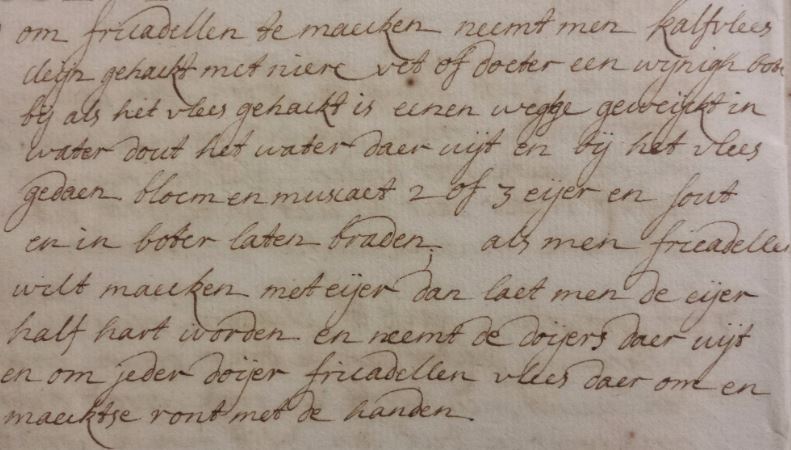 om fricadellen te maecken neemt men kalfvlees
cleijn gehackt met niere vet of doeter een wijnigh boter
bij als het vlees gehackt is eenen wegge geweijckt in
water dout het water daer uijt en bij het vlees
gedaen bloem en muscaet 2 of 3 eijer en sout
en in boter laten braden, als men fricadelle
wilt maecken met eijer dan laet men de eijer
half hart worden en neemt de doijers daer uijt
en om jeder doijer fricadellen vlees daer om en
maecktse ront met de handen.